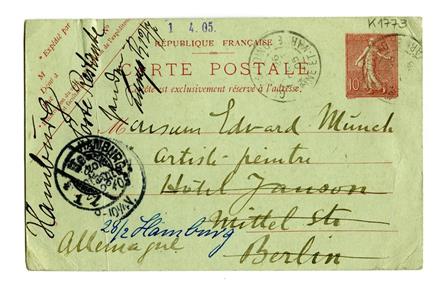 1 4.05.
K1773
RÉPUBLIQUE FRANÇAISE
CARTE POSTALE
Ce côté est exclusivement réservé à l'adresse.
Expédié par
M
10
Monsieur Edvard Münch
artiste-peintre
Hôtel Janson
Mittel Str
Berlin
Allemagne
28/2 Hamburg
Hamburg
Poste Restante
HAMBURG